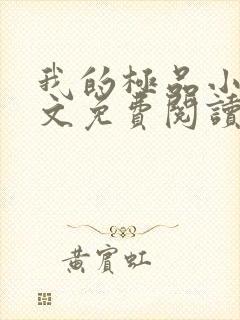 我的極品小
文免費閱讀
黃賓虹